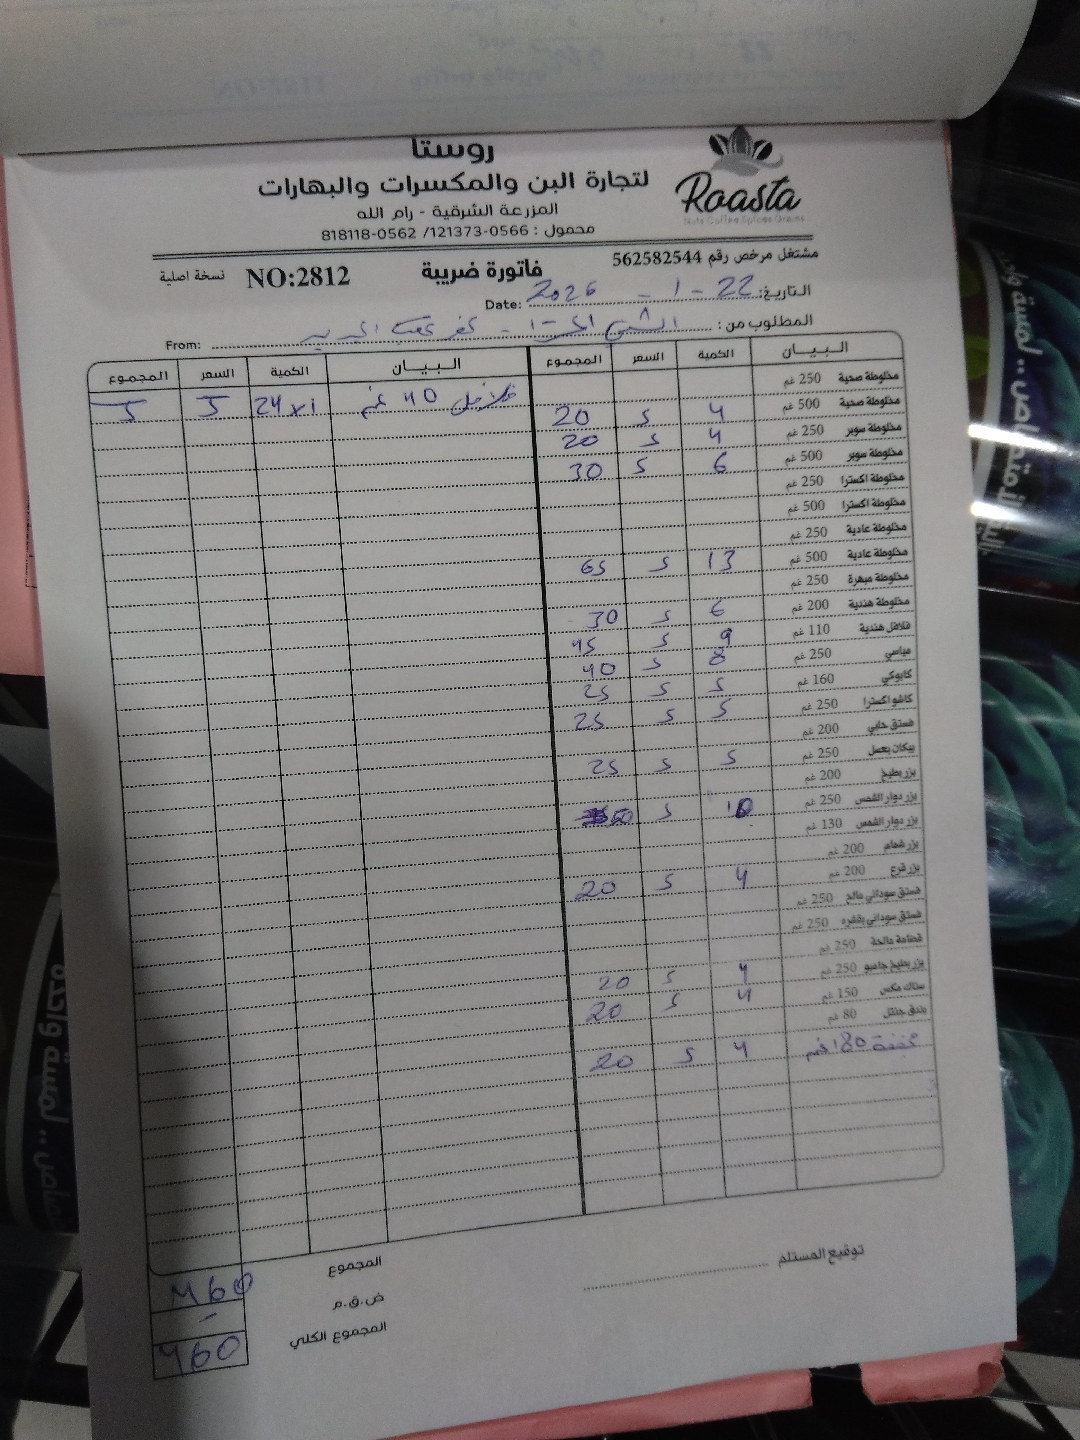 روستا
لتجارة البن والمكسرات والبهارات
Roasta
Nuts Coffee Spices Grains
المزرعة الشرقية - رام الله
محمول : 0566-121373/ 0562-818118
مشتغل مرخص رقم 562582544
فاتورة ضريبة
NO:2812
نسخة اصلية
التاريخ: 22 - 1 - 2026 Date:
المطلوب من: From:
البيان الكمية السعر المجموع البيان الكمية السعر المجموع
مخلوطة صحية 250 غم فلافل 40 غم 24x1 5 5
مخلوطة صحية 500 غم 4 5 20
مخلوطة سوبر 250 غم 4 5 20
مخلوطة سوبر 500 غم 6 5 30
مخلوطة اكسترا 250 غم
مخلوطة اكسترا 500 غم
مخلوطة عادية 250 غم
مخلوطة عادية 500 غم 13 5 65
مخلوطة مبهرة 250 غم
مخلوطة هندية 200 غم 6 5 30
فلافل هندية 110 غم 9 5 45
مياسي 250 غم 8 5 40
كابوكي 160 غم 5 5 25
كاشو اكسترا 250 غم 5 5 25
فستق حلبي 200 غم
بيكان بعسل 250 غم 5 5 25
بزر بطيخ 200 غم
بزر دوار الشمس 250 غم 10 5 50
بزر دوار الشمس 130 غم
بزر شمام 200 غم
بزر قرع 200 غم 4 5 20
فستق سوداني مالح 250 غم
فستق سوداني بقشره 250 غم
قضامة مالحة 250 غم
بزر بطيخ جامبو 250 غم 4 5 20
سناك مكس 150 غم 4 5 20
بندق جنتل 80 غم
180 غم 4 5 20
المجموع 460
ض.ق.م -
المجموع الكلي 460
توقيع المستلم